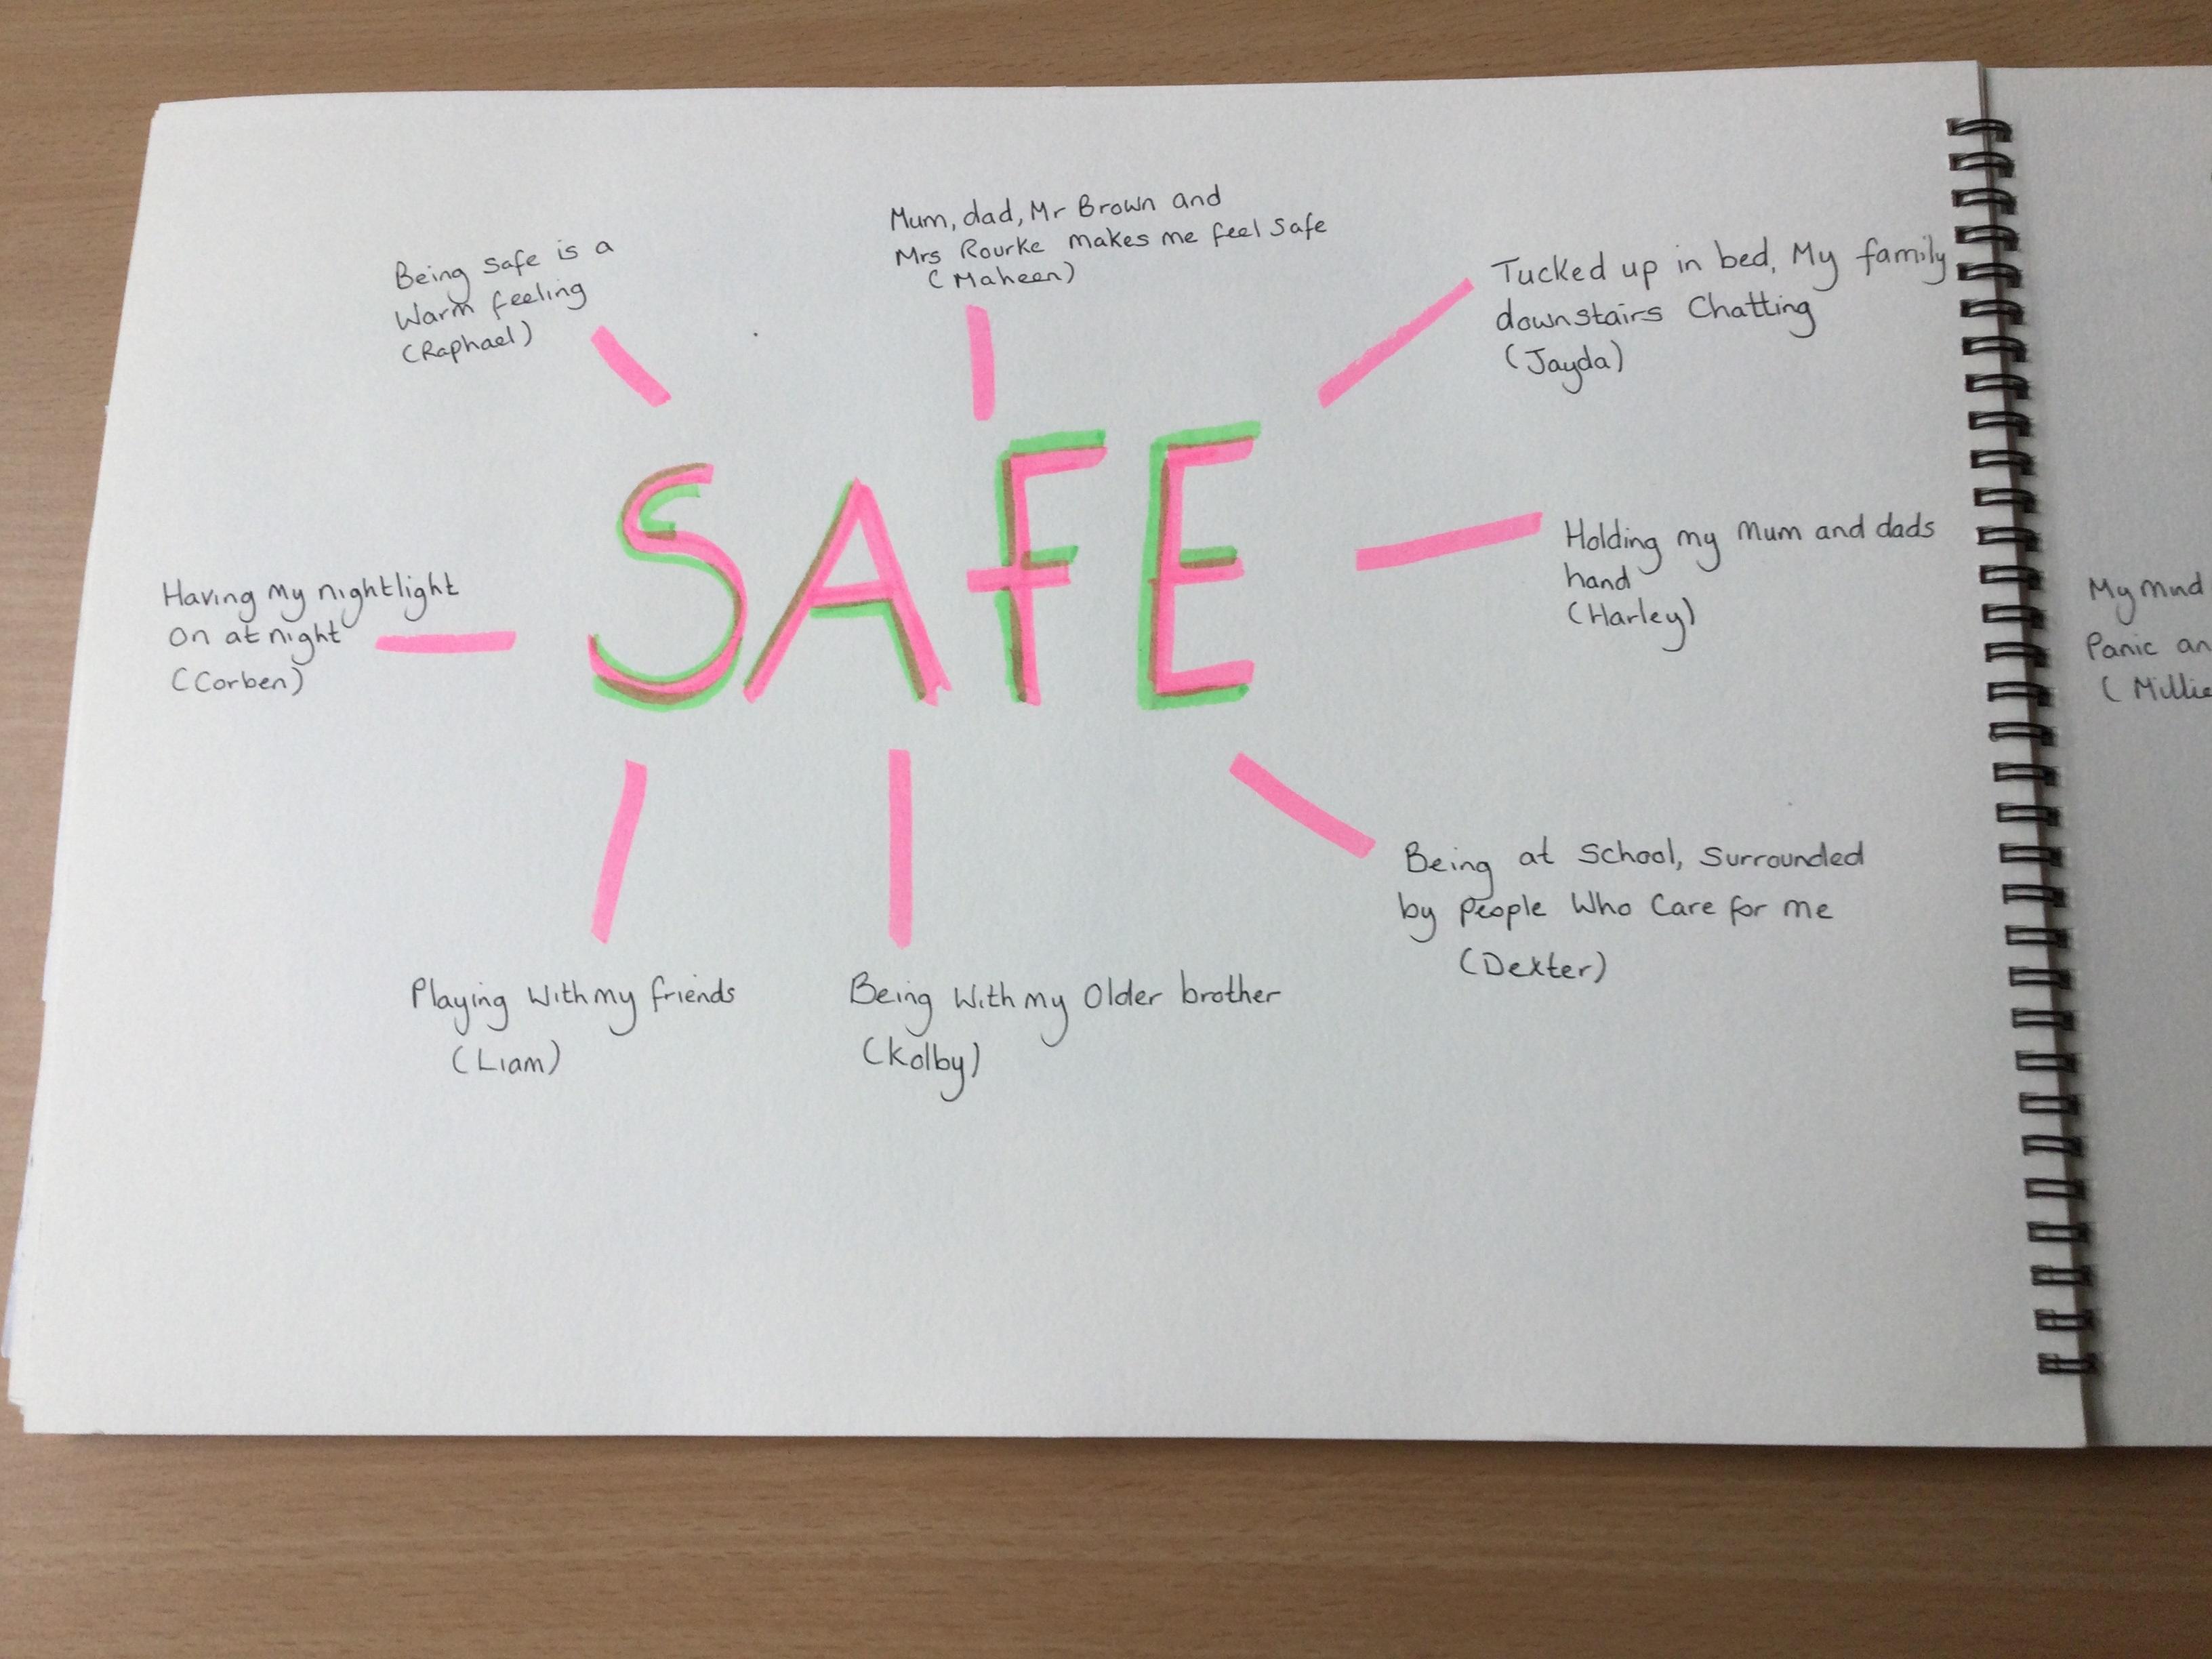 Being safe is a
warm feeling
(Raphael)
Mum, dad, Mr Brown and
Mrs Rourke makes me feel safe
(Maheen)
Tucked up in bed, My family
downstairs Chatting
(Jayda)
SAFE
Having my nightlight
on at night
(Corben)
Holding my Mum and dads
hand
(Harley)
Being at School, Surrounded
by people Who Care for me
(Dexter)
Playing With my friends
(Liam)
Being With my Older brother
(Kolby)
My mind
Panic an
(Millie